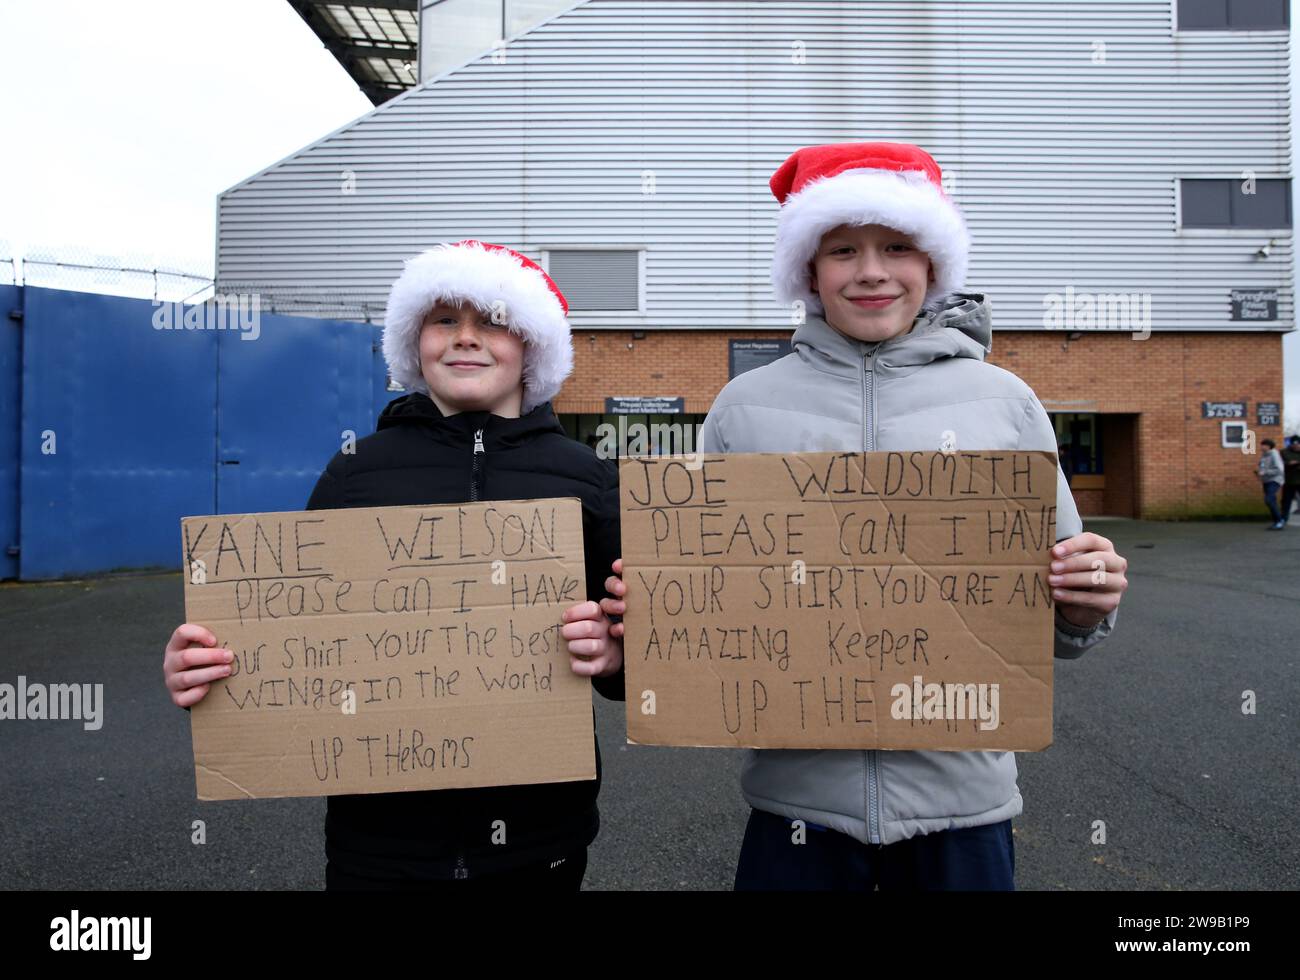 KANE WILSON
please can I HAVE
Your shirt. Your The best
WINger In the World
UP THe RAMS
JOE WILDSMITH
PLEASE CAN I HAVE
YOUR SHIRT. YOU ARE AN
AMAZING KeePER.
UP THE RAMS.
Ground Regulations
Pre-paid collections
Press and Media Passes
Stand
D1
alamy
Image ID: 2W9B1P9
www.alamy.com